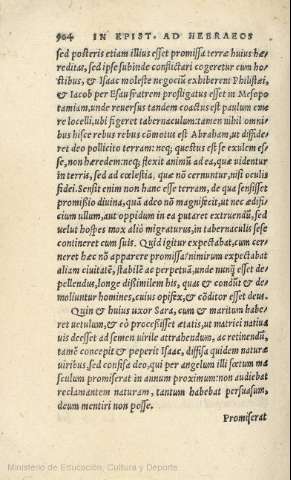 904 IN EPIST. AD HEBRAEOS
sed posteris etiam illius esset promissa terræ huius hæ-
reditas, sed ipse subinde conflictari cogeretur cum ho-
stibus, & Isaac moleste negociū exhiberent Philistæi,
& Iacob per Esau fratrem profligatus esset in Mesopo
tamiam, unde reuersus tandem coactus est paulum eme
re locelli, ubi figeret tabernaculum: tamen nihil omni-
bus hisce rebus rebus cōmotus est Abraham, ut diffide-
ret deo pollicito terram: neq; questus est se exulem es-
se, non hæredem: neq; flexit animū ad ea, quæ uidentur
in terris, sed ad cœlestia, quæ nō cernuntur, nisi oculis
fidei. Sensit enim non hanc esse terram, de qua sensisset
promissio diuina, quā adeo nō magnifecit, ut nec ædifi-
cium ullum, aut oppidum in ea putaret extruendū, sed
uelut hospes mox alio migraturus, in tabernaculis sese
contineret cum suis. Quid igitur expectabat, cum cer-
neret hæc nō apparere promissa? nimirum expectabat
aliam ciuitatē, stabilē ac perpetuā, unde nunq̄ esset de-
pellendus, longe dißimilem his, quas & condūt & de-
moliuntur homines, cuius opifex, & cōditor esset deus.
Quin & huius uxor Sara, cum & maritum habe-
ret uetulum, & eò processisset ætatis, ut matrici natiua
uis deesset ad semen uirile attrahendum, ac retinendū,
tamē concepit & peperit Isaac, diffisa quidem naturæ
uiribus, sed confisa deo, qui per angelum illi fœtum ma
sculum promiserat in annum proximum: non audiebat
reclamantem naturam, tantum habebat persuasum,
deum mentiri non posse.
Promiserat
Ministerio de Educación, Cultura y Deporte